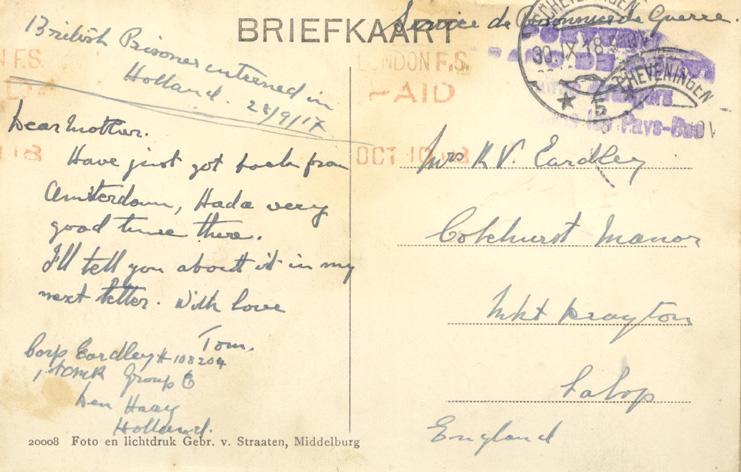 BRIEFKAART
Service de Prisonniers de Guerre.
British Prisoner interned in
Holland. 28/9/17
LONDON F.S.
PAID
OCT 10 18
SCHEVENINGEN
30.IX.18
5
SCHEVENINGEN
Pays-Bas
Dear Mother.
Have just got back from
Amsterdam, Had a very
good time there.
I'll tell you about it in my
next letter. With love
Tom.
Corp Eardley # 108204
Group E
Den Haag
Holland.
Mrs R V. Eardley
Colehurst Manor
Mkt Drayton
Salop
England
20008 Foto en lichtdruk Gebr. v. Straaten, Middelburg